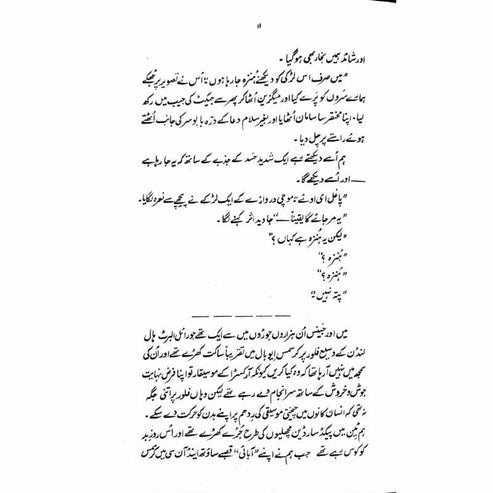 ۱۱
اور شائد ہمیں بخار بھی ہو گیا۔
"میں صرف اس لڑکی کو دیکھنے ہُنزہ جا رہا ہوں نا" اُس نے تصویر پر جھکے
ہمارے سَروں کو پَرے کیا اور میگزین اُٹھا کر پھر سے جیکٹ کی جیب میں رکھ
لیا۔ اپنا مختصر سا سامان اُٹھایا اور بغیر سلام دعا کے درّہ بابوسر کی جانب اُٹھتے
ہوئے راستے پر چل دیا۔
ہم اُسے دیکھتے رہے ایک شدید حَسد کے جذبے کے ساتھ کہ یہ جا رہا ہے
— اور اُسے دیکھے گا۔
"پاغل ای اوئے" موچی دروازے کے ایک لڑکے نے پیچھے سے نعرہ لگایا۔
"یہ مر جائے گا یقیناً —" جاوید اثر کہنے لگا۔
"لیکن یہ ہُنزہ ہے کہاں؟"
"ہُنزہ؟"
"ہُنزہ؟"
"پتہ نہیں!"
میں اور جینس اُن ہزاروں جوڑوں میں سے ایک تھے جو رائل البرٹ ہال
لندن کے وسیع فلور پر کرسمس ایو بال میں تقریباً ساکت کھڑے تھے اور اُن کی
سمجھ میں نہیں آ رہا تھا کہ وہ کیا کریں کیونکہ آرکسٹرا کے موسیقار تو اپنا فرض نہایت
جوش و خروش کے ساتھ سرانجام دے رہے تھے لیکن وہاں فلور پر اتنی جگہ
نہ تھی کہ انسان کانوں میں چیختی موسیقی کی رِدھم پر اپنے بدن کو حرکت دے سکے۔
ہم ٹین میں پیکڈ سارڈین مچھلیوں کی طرح جُڑے کھڑے تھے اور اُس روزِ بد
کو کوس رہے تھے جب ہم نے اپنے "آبائی" قصبے ساؤتھ اینڈ آن سی میں کرسمس